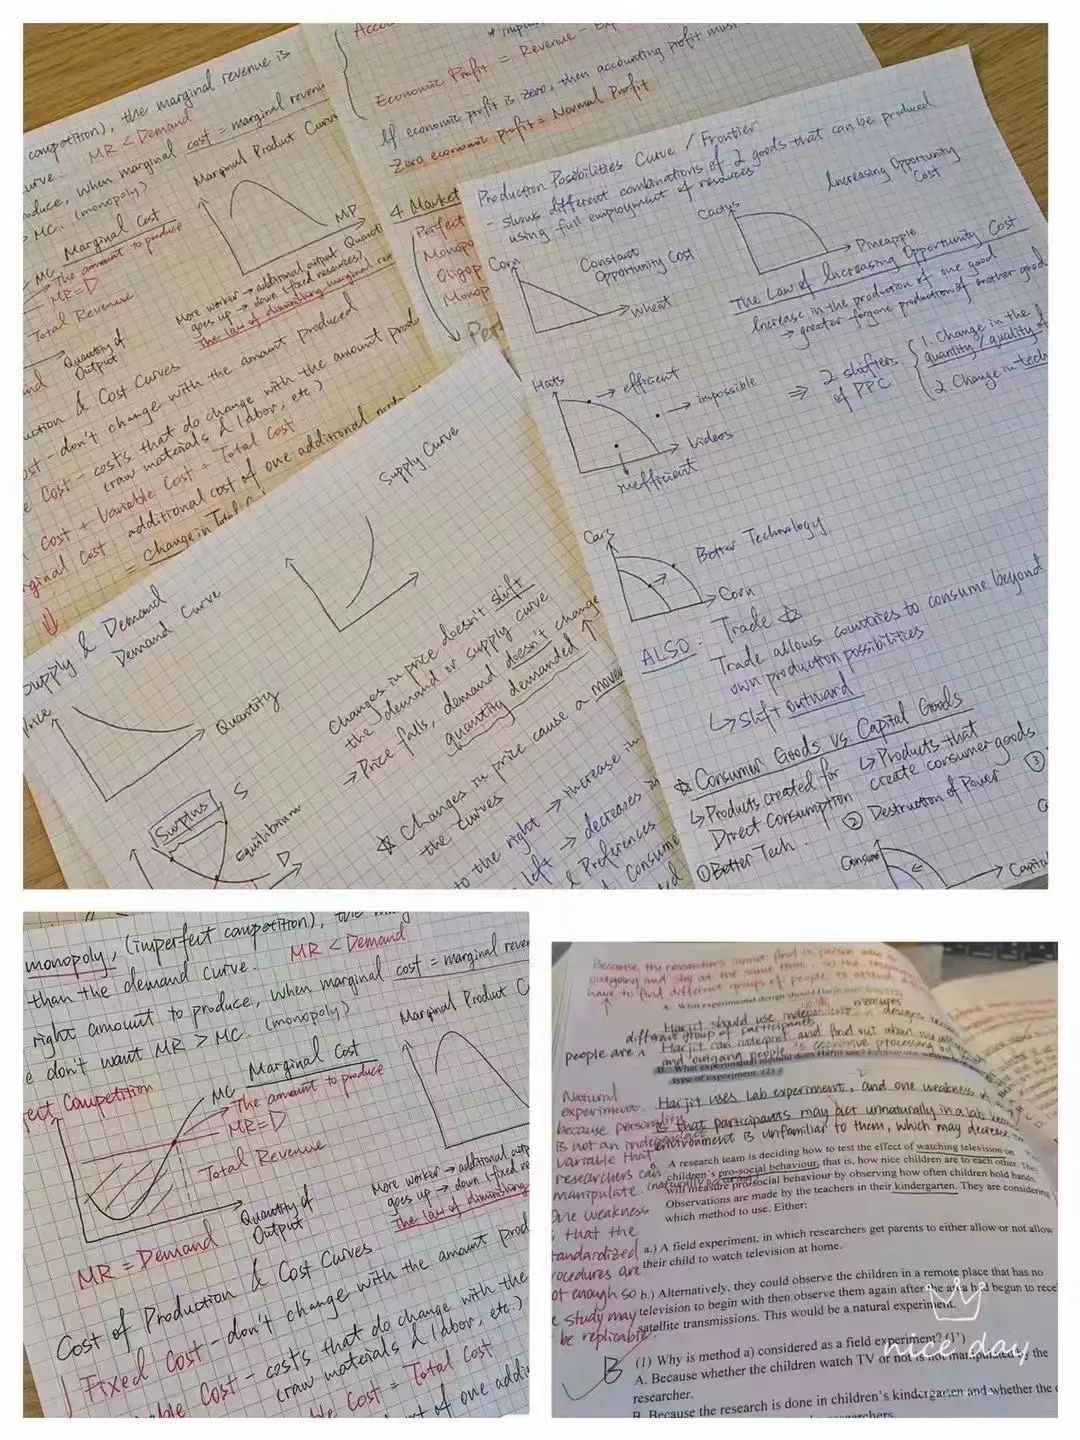 competition), the marginal revenue is
MR < Demand
curve.
when marginal cost = marginal revenu
(monopoly)
> MC.
Marginal Product Curv
Marginal Cost
MC
The amount to produce
MR=D
MP
Total Revenue
Quantity of
Output
More worker → additional output
goes up → down (fixed resources)
The law of diminishing marginal
& Cost Curves
- don't change with the amount produced
Cost - costs that do change with the amount
(raw materials & labor, etc.)
Cost + Variable Cost = Total Cost
Cost: additional cost of one additional
= change in Total
Economic Profit = Revenue -
If economic profit is zero, then accounting profit must
Zero economic Profit = Normal Profit
4 Market
Perfect
Monopo
Oligop
Monop
Production Possibilities Curve / Frontier
- shows different combinations of 2 goods that can be produced
using full employment of resources
Increasing Opportunity
Cost
Corn
Constant
Opportunity Cost
Wheat
Cactus
Pineapple
The Law of Increasing Opportunity Cost
Increase in the production of one good
→ greater forgone production of another good
Hats
→ efficient
→ impossible
Videos
inefficient
⇒ 2 shifters
of PPC
1. Change in the
quantity / quality
2. Change in tech
Cars
Better Technology
Corn
ALSO: Trade ☆
Trade allows countries to consume beyond
own production possibilities
↳ Shift outward
☆ Consumer Goods vs Capital Goods
↳ Products created for
Direct Consumption
↳ Products that
create consumer goods
① Better Tech.
② Destruction of Power
③
Consum
Capital
Supply & Demand
Demand Curve
Supply Curve
Price
Quantity
Surplus
S
Equilibrium
D
Changes in price doesn't shift
the demand or supply curve
→ Price falls, demand doesn't change
quantity demanded ↑
☆ Changes in price cause a move
the curves
to the right → increase in
left → decreases in
& Preferences
Consume
monopoly, (imperfect competition), the
than the demand curve. MR < Demand
right amount to produce, when marginal cost = marginal reven
e don't want MR > MC. (monopoly)
Marginal Product C
Marginal Cost
ect Competition
MC
The amount to produce
MR=D
Total Revenue
Quantity of
Output
More worker → additional outp
goes up → down (fixed re
The law of diminishing
MR = Demand
Cost of Production & Cost Curves
Fixed Cost - don't change with the amount prod
Cost - costs that do change with the
(raw materials & labor, etc.)
Cost = Total Cost
of one addi
Because the researchers cannot find a person who is
outgoing and shy at the same time, so the
have to find different groups of people to attend
A. What experimental design should Harjit use?
Harjit should use independent measures design, because
different group of participants
people are
Harjit can interpret and find out about
and outgoing people is cognitive processing
B. What experimental method does Harjit use?
type of experiment. (2)
Harjit uses lab experiment, and one weakness
is that participants may act unnaturally in a lab
environment is unfamiliar to them, which may decrease
Natural
experiment.
because personality
is not an independent
variable that
researchers can
manipulate (naturally
One weakness
is that the
standardized
procedures are
not enough so
study may
be replicable.
A research team is deciding how to test the effect of watching television on
children's pro-social behaviour, that is, how nice children are to each other. They
will measure pro-social behaviour by observing how often children hold hands.
Observations are made by the teachers in their kindergarten. They are considering
which method to use. Either:
a.) A field experiment, in which researchers get parents to either allow or not allow
their child to watch television at home.
b.) Alternatively, they could observe the children in a remote place that has no
television to begin with then observe them again after the area had begun to rece
satellite transmissions. This would be a natural experiment.
B
(1) Why is method a) considered as a field experiment? (1')
A. Because whether the children watch TV or not is not manipulated by the
researcher.
B. Because the research is done in children's kindergarten and whether the
nice day